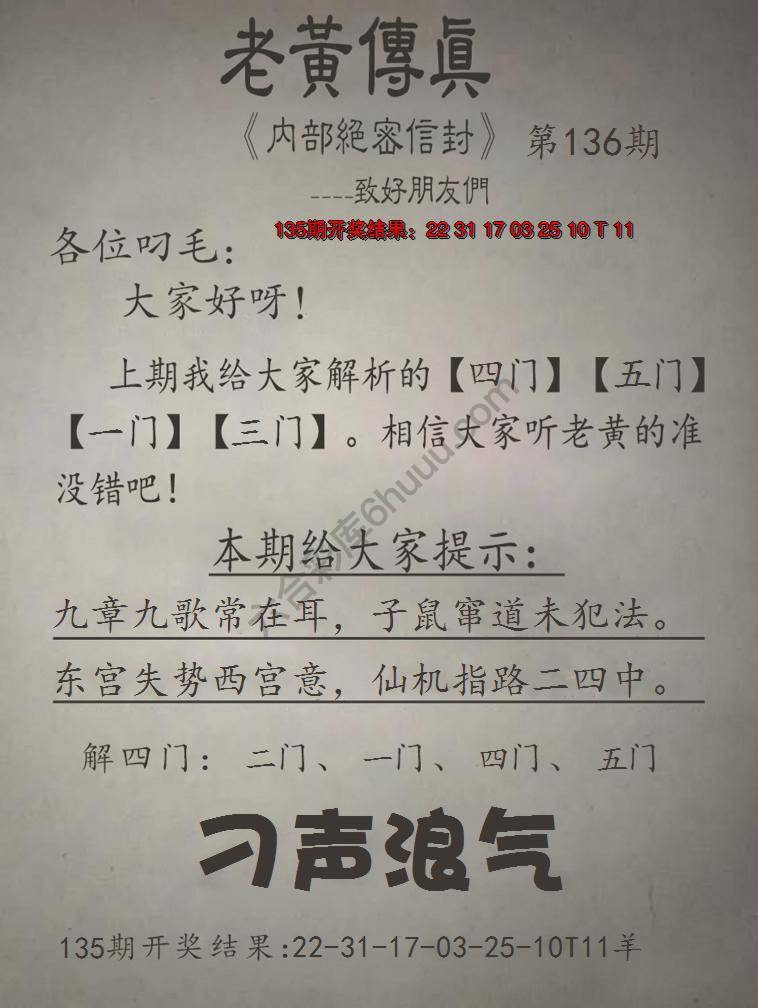 老黃傳真
《内部絕密信封》 第136期
----致好朋友們
135期开奖结果：22 31 17 03 25 10 T 11
各位叼毛：
大家好呀！
上期我给大家解析的【四门】【五门】
【一门】【三门】。相信大家听老黄的准
没错吧！
本期给大家提示：
九章九歌常在耳，子鼠窜道未犯法。
东宫失势西宫意，仙机指路二四中。
解四门： 二门、 一门、 四门、 五门
刁声浪气
135期开奖结果:22-31-17-03-25-10T11羊
六合彩库6huuu.com